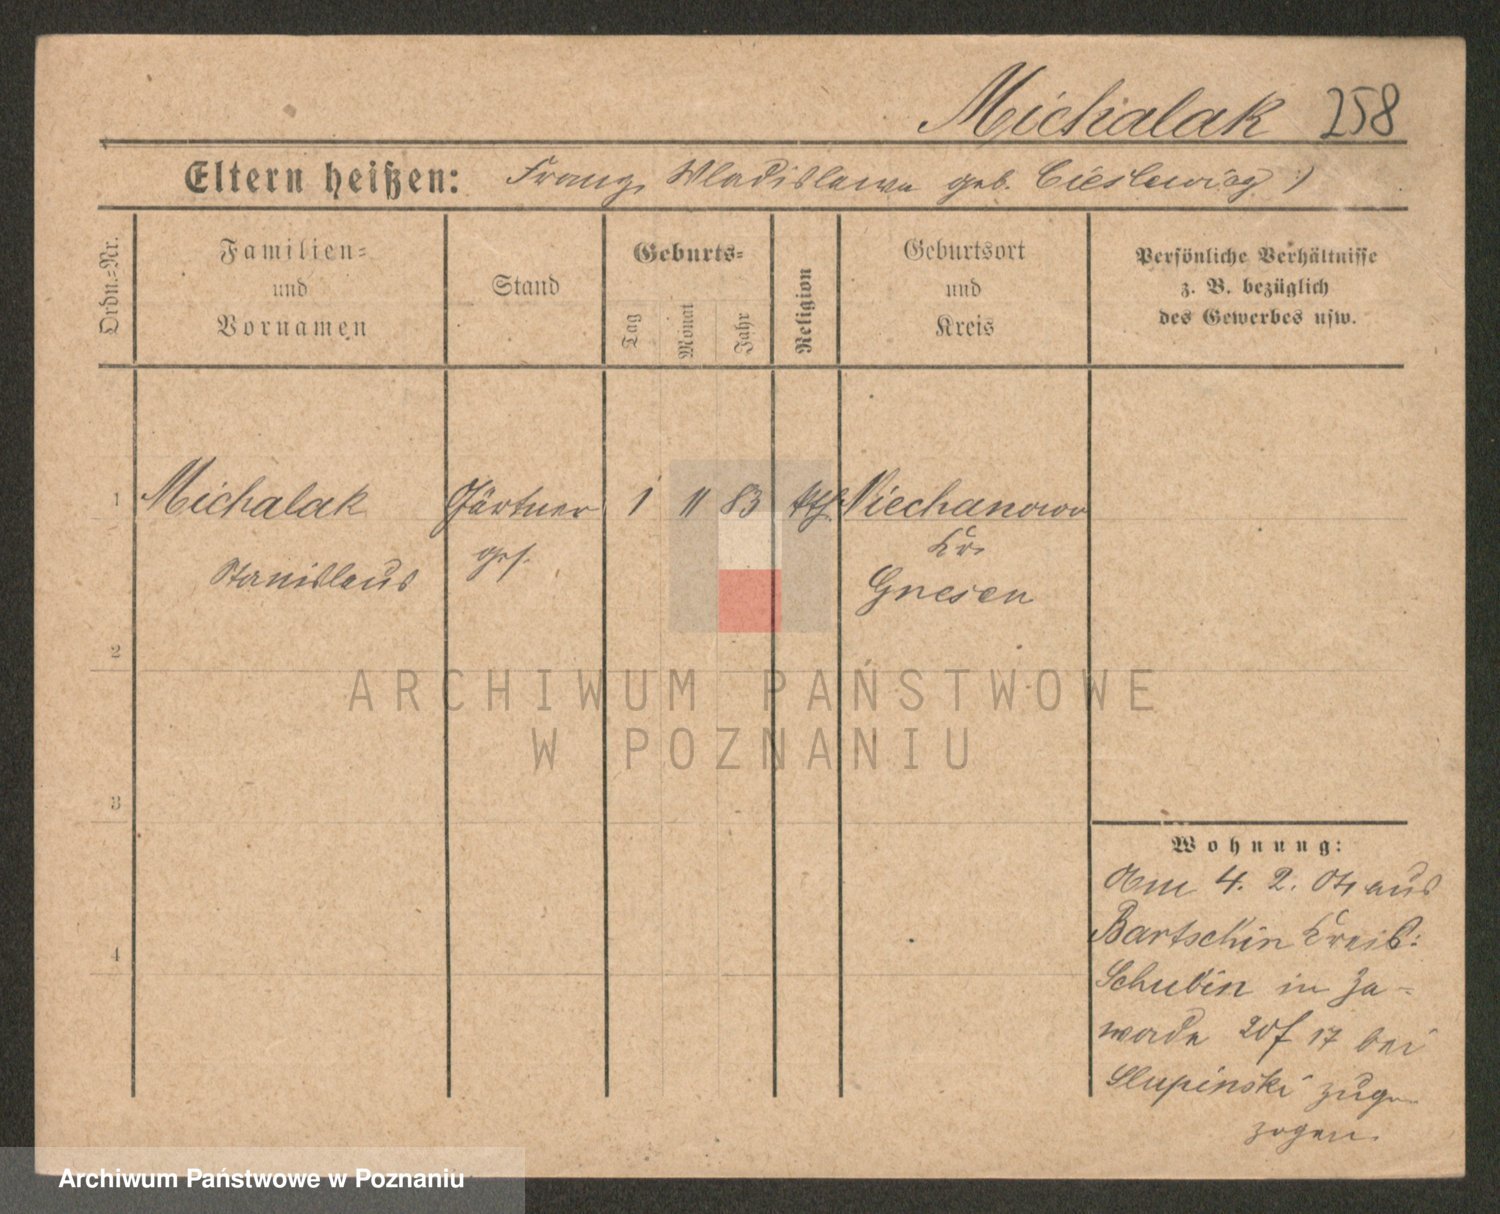 Michalak 258
Eltern heißen: Franz, Wladislawa geb. Cieslewicz
Ordn.=Nr.
Familien=
und
Vornamen
Stand
Geburts=
Tag
Monat
Jahr
Religion
Geburtsort
und
Kreis
Persönliche Verhältnisse
z. B. bezüglich
des Gewerbes usw.
1 Michalak Gärtner 1 11 83 kth Niechanowo
ges. Kr.
Stanislaus Gnesen
2
ARCHIWUM PAŃSTWOWE
W POZNANIU
3
Wohnung:
Am 4. 2. 04 aus
Bartschin Kreis:
4
Schubin in Za-
wade 17 bei
Slupinski zuge-
zogen.
Archiwum Państwowe w Poznaniu